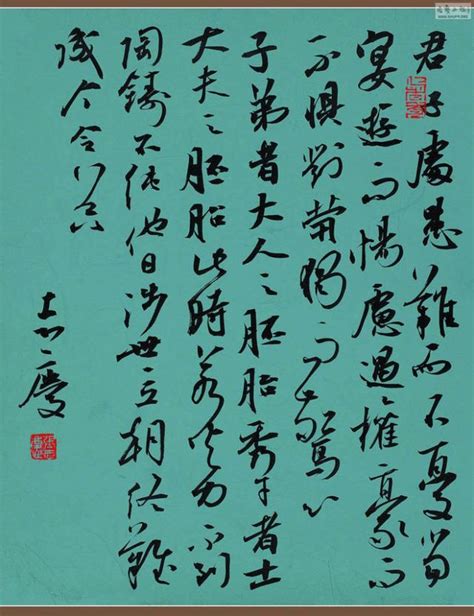 君子處患難而不憂當
宴遊而惕慮遇權豪而
不懼對煢獨而驚心
子弟者大人之胚胎秀才者士
大夫之胚胎此時若火力不到
陶鑄不純他日涉世立朝終難
成个令器